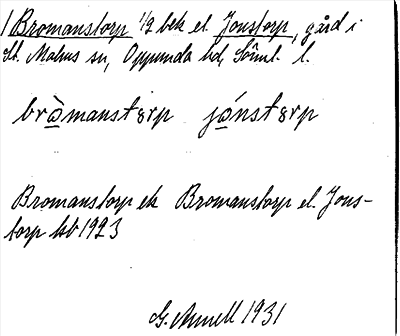 1 Bromanstorp 1/2 bek el. Jonstorp, gård i
St. Malms sn, Oppunda hd, Söml. l.
bròmanstərp jónstərp
Bromanstorp ek Bromanstorp el. Jons-
torp kb 1923
G. Annell 1931